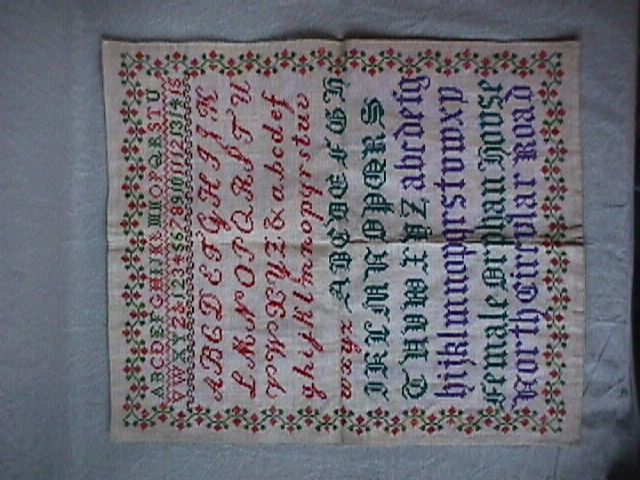 ABCDEFGHIJKLMNOPQRSTU
VWXYZ&123456789101112131415
ABCDEFGHIJK
LMNOPQRSTU
VWXYZ&abcdef
ghijklmnopqrstuv
wxyz ABCDEFGH
IKLMNOPQRS
TUVWXYZ abcdefg
hijklmnopqrstuvwxyz
Female Orphan House
North Circular Road